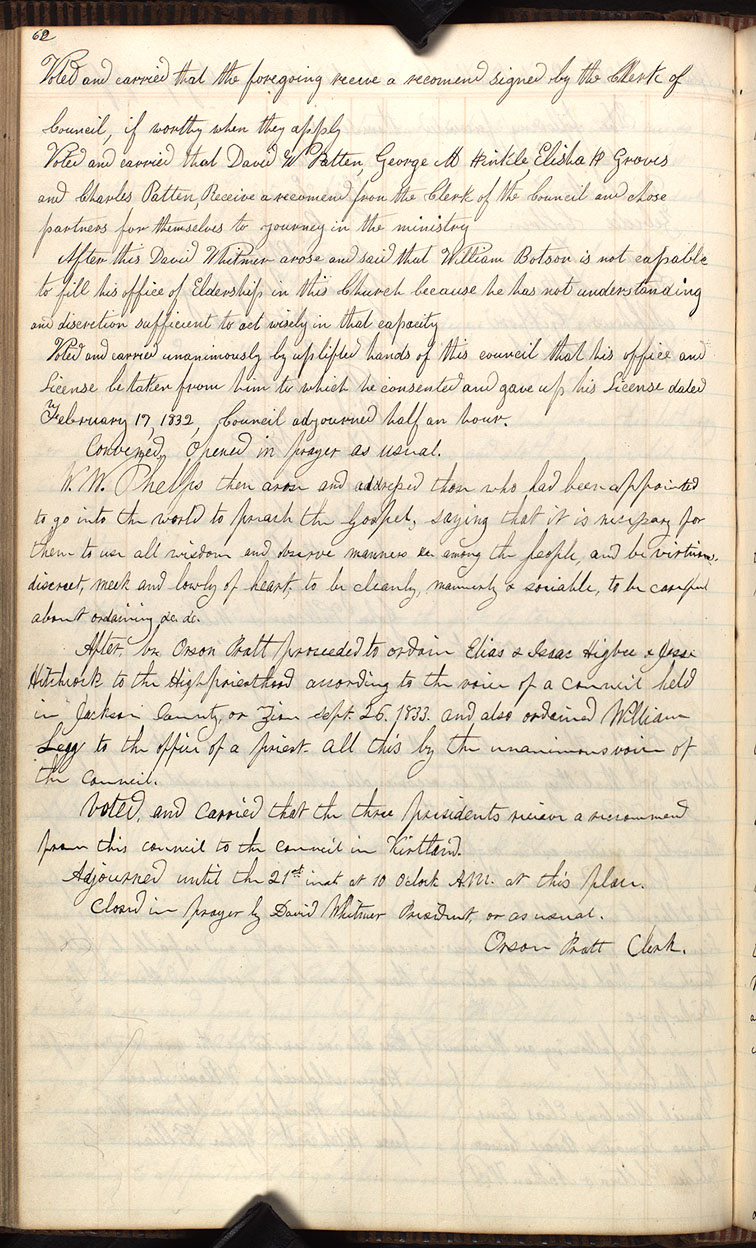 62
Voted and carried that the foregoing receive a recomend signed by the Clerk of
Council, if worthy when they apply
Voted and carried that David W Patten, George M Hinkle, Elisha H Groves
and Charles Patten, Receive a recomend from the Clerk of the Council and chose
partners for themselves to journey in the ministry
After this David Whitmer arose and said that William Botson is not capable
to fill his office of Eldership in this Church because he has not understanding
and discretion sufficient to act wisely in that capacity
Voted and carried unanimously by uplifted hands of this council that his office and
License be taken from him to which he consented and gave up his License dated
February 17, 1832, Council adjourned half an hour.
Convened, Opened in prayer as usual.
W. W. Phelps then arose and addressed those who had been appointed
to go into the world to preach the Gospel; saying that it is necessary for
them to use all wisdom and observe manners &c. among the people, and be virtuous,
discreet, meek and lowly of heart; to be cleanly, mannerly & sociable, to be careful
about ordaining &c. &c.
After, br. Orson Pratt proceeded to ordain Elias & Isaac Higbee & Jesse
Hitchcock to the High priesthood according to the voice of a council held
in Jackson County, or Zion Sept. 26. 1833. and also ordained William
Legg to the office of a priest all this by the unanimous voice of
the council.
Voted, and carried that the three presidents receive a recommend
from this council to the council in Kirtland.
Adjourned until the 21st inst at 10 Oclock A.M. at this place.
Closed in prayer by David Whitmer President, or as usual.
Orson Pratt Clerk.